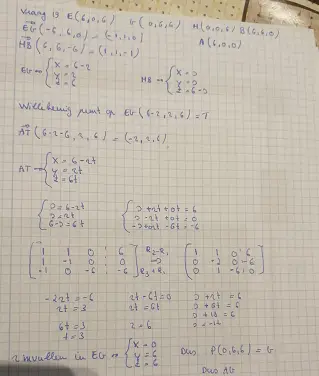 Vraag 13 E(6,0,6) G(0,6,6) H(0,0,6) B(6,6,0)
EG(-6,6,0) = (-1,1,0) A(6,0,0)
HB(6,6,-6) = (1,1,-1)
EG → { x = 6-2
y = 2
z = 6
HB → { x = s
y = s
z = 6-s
Willekeurig punt op EG (6-2,2,6) = T
AT (6-2-6,2,6) = (-2,2,6)
AT → { x = 6-2t
y = 2t
z = 6t
{ s = 6-2t
s = 2t
6-s = 6t
{ s+2t+0t = 6
s-2t+0t = 0
-s+0t-6t = -6
[ 1 1 0 6
1 -1 0 0
-1 0 -6 -6 ]
R2-R1
R3+R1
[ 1 1 0 6
0 -2 0 -6
0 1 -6 0 ]
-22t = -6
2t = 3
2t-6t = 0
2t = 6t
s+2t = 6
s+6t = 6
6t = 3
2 = 6
t = 3
2 invullen in EG → { x = 0
y = 6
z = 6
Dus P(0,6,6) = G
Dus AG